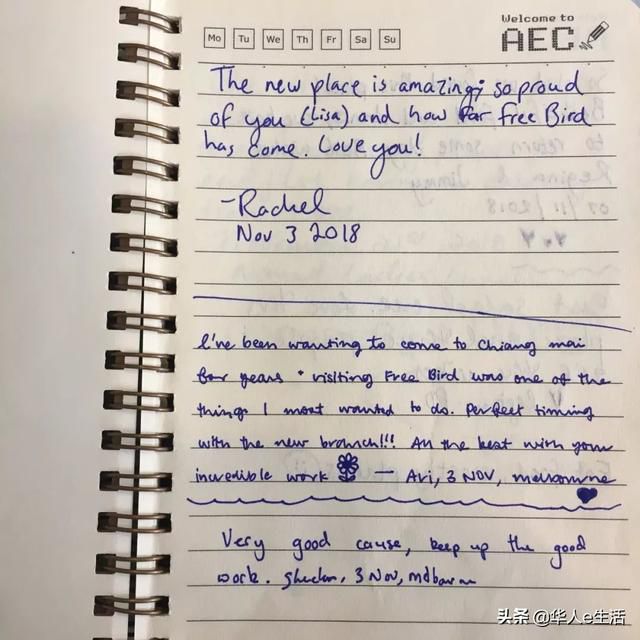 Welcome to
AEC
Mo Tu We Th Fr Sa Su
The new place is amazing; so proud
of you (Lisa) and how far Free Bird
has come. Love you!
-Rachel
Nov 3 2018
I've been wanting to come to Chiang mai
for years + visiting Free Bird was one of the
things I most wanted to do. Perfect timing
with the new branch!!! All the best with your
incredible work — Avi, 3 NOV, melbourne
Very good cause, keep up the good
work. 3 Nov, melbourne
to return some
Regina & Jimmy
07/11/2018
头条 @华人e生活